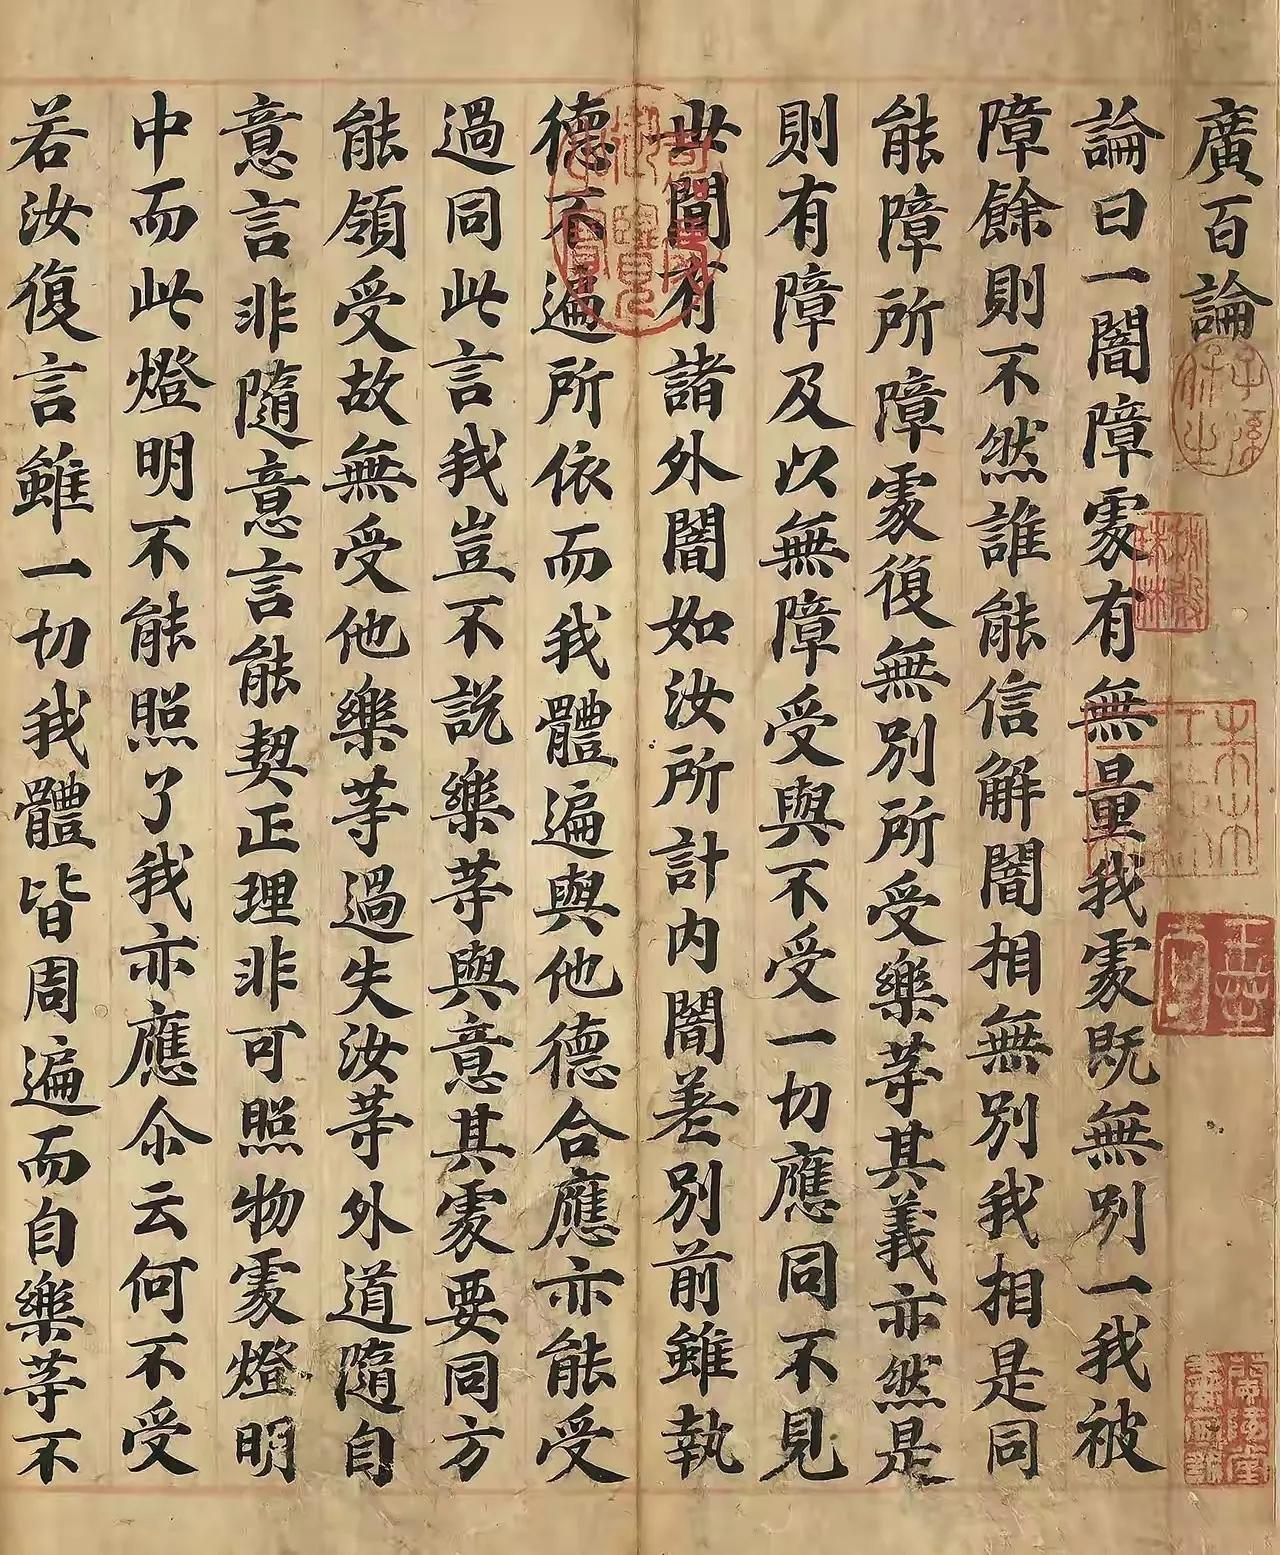 廣百論
論曰一闇障處有無量我處既無別一我被
障餘則不然誰能信解闇相無別我相是同
能障所障處復無別所受樂等其義亦然是
則有障及以無障受與不受一切應同不見
世間有諸外闇如汝所計内闇差別前雖執
德不遍所依而我體遍與他德合應亦能受
過同此言我豈不說樂等與意其處要同方
能領受故無受他樂等過失汝等外道隨自
意言非隨意言能契正理非可照物處燈明
中而此燈明不能照了我亦應尒云何不受
若汝復言雖一切我體皆周遍而自樂等不